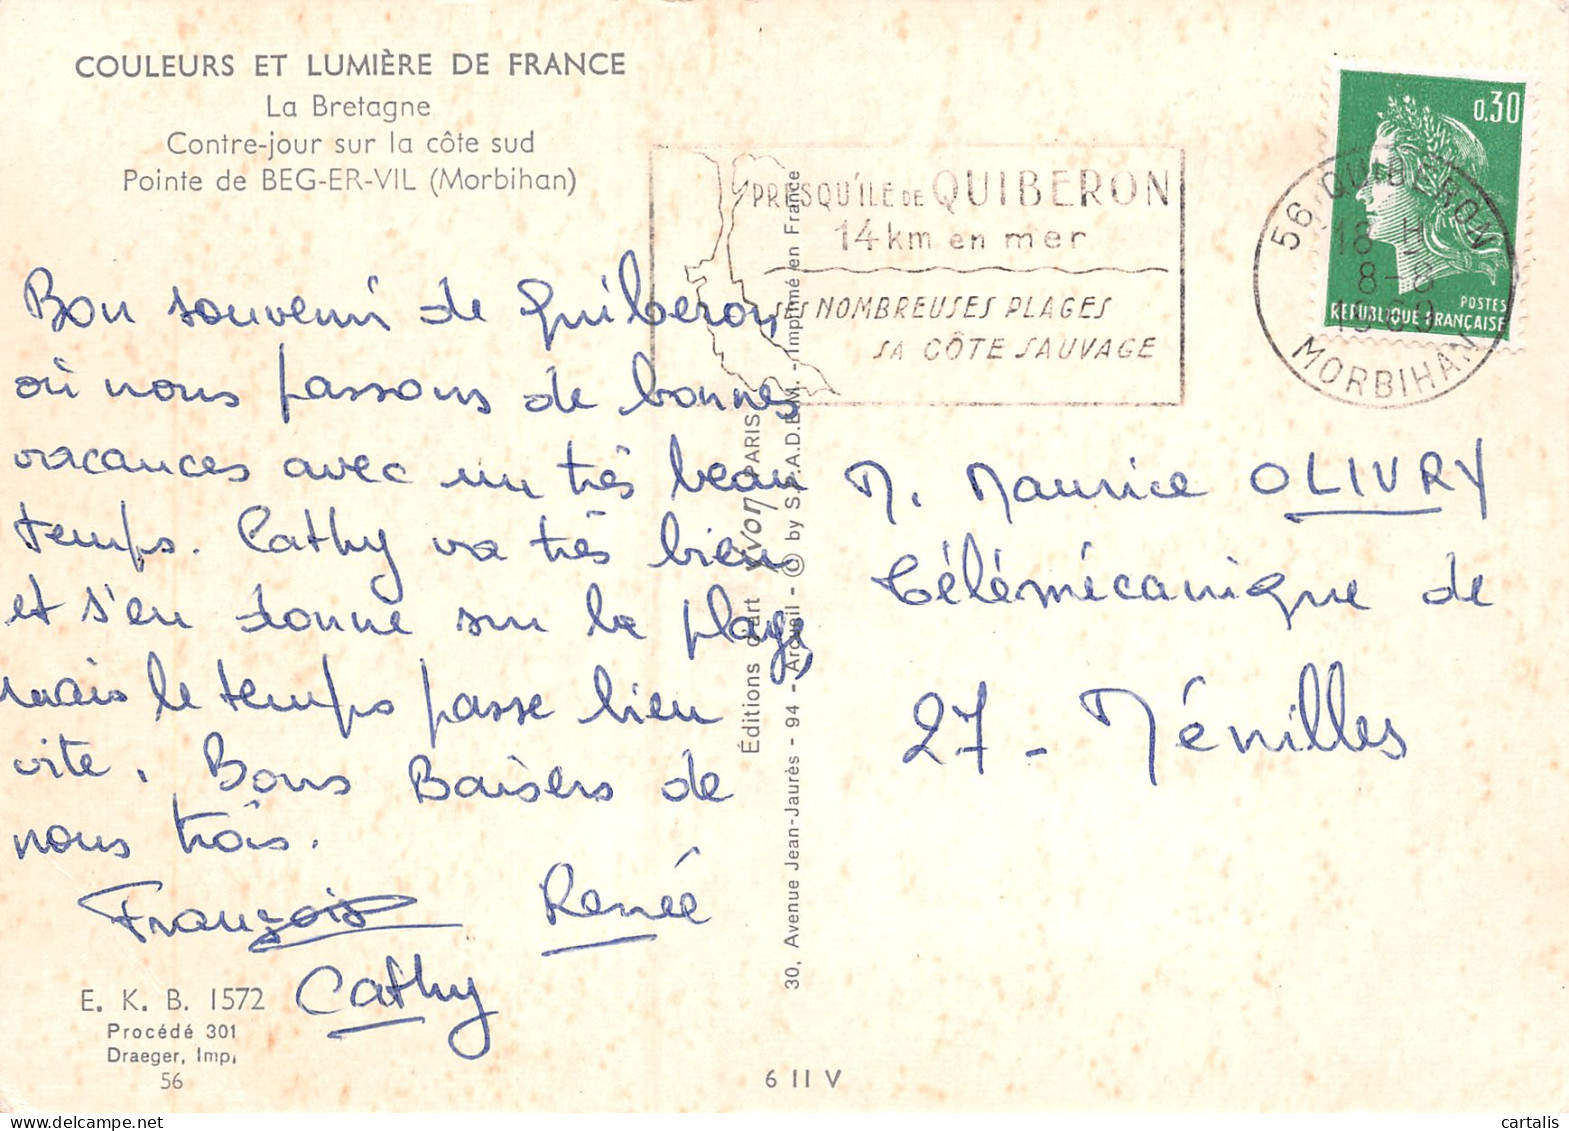 COULEURS ET LUMIÈRE DE FRANCE
La Bretagne
Contre-jour sur la côte sud
Pointe de BEG-ER-VIL (Morbihan)
Bon souvenir de Quiberon,
où nous passons de bonnes
vacances avec un très beau
temps. Cathy va très bien
et s'en donne sur la plage,
mais le temps passe bien
vite. Bons Baisers de
nous trois.
François Renée
Cathy
E. K. B. 1572
Procédé 301
Draeger, Imp.
56
Éditions d'art YVON PARIS
30, Avenue Jean-Jaurès - 94 - Arcueil - © by S.P.A.D.E.M. - Imprimé en France
6 II V
PRESQU'ILE DE QUIBERON
14 km en mer
SES NOMBREUSES PLAGES
SA CÔTE SAUVAGE
56 QUIBERON
18 H
8-8
MORBIHAN
0,30
POSTES
REPUBLIQUE FRANÇAISE
M. Maurice OLIVRY
Télémécanique de
27 - Ménilles
cartalis